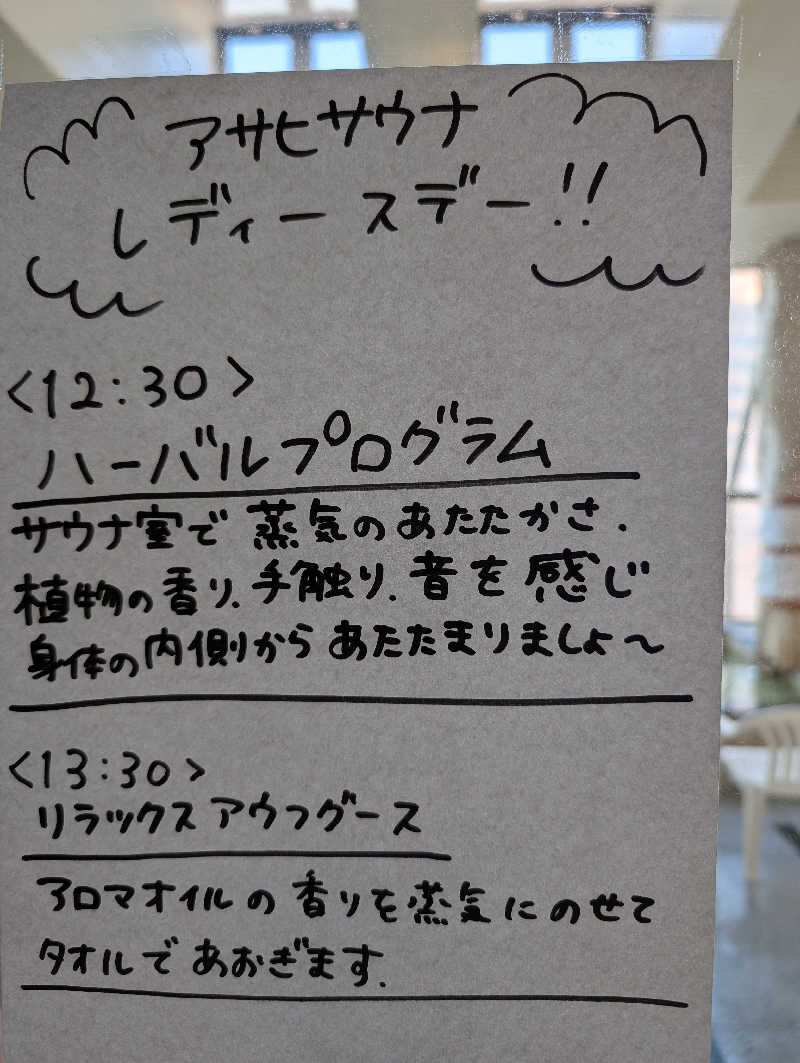 アサヒサウナ
レディースデー!!
<12:30>
ハーバルプログラム
サウナ室で蒸気のあたたかさ、
植物の香り、手触り、音を感じ
身体の内側からあたたまりましょ〜
<13:30>
リラックスアウフグース
アロマオイルの香りを蒸気にのせて
タオルであおぎます。